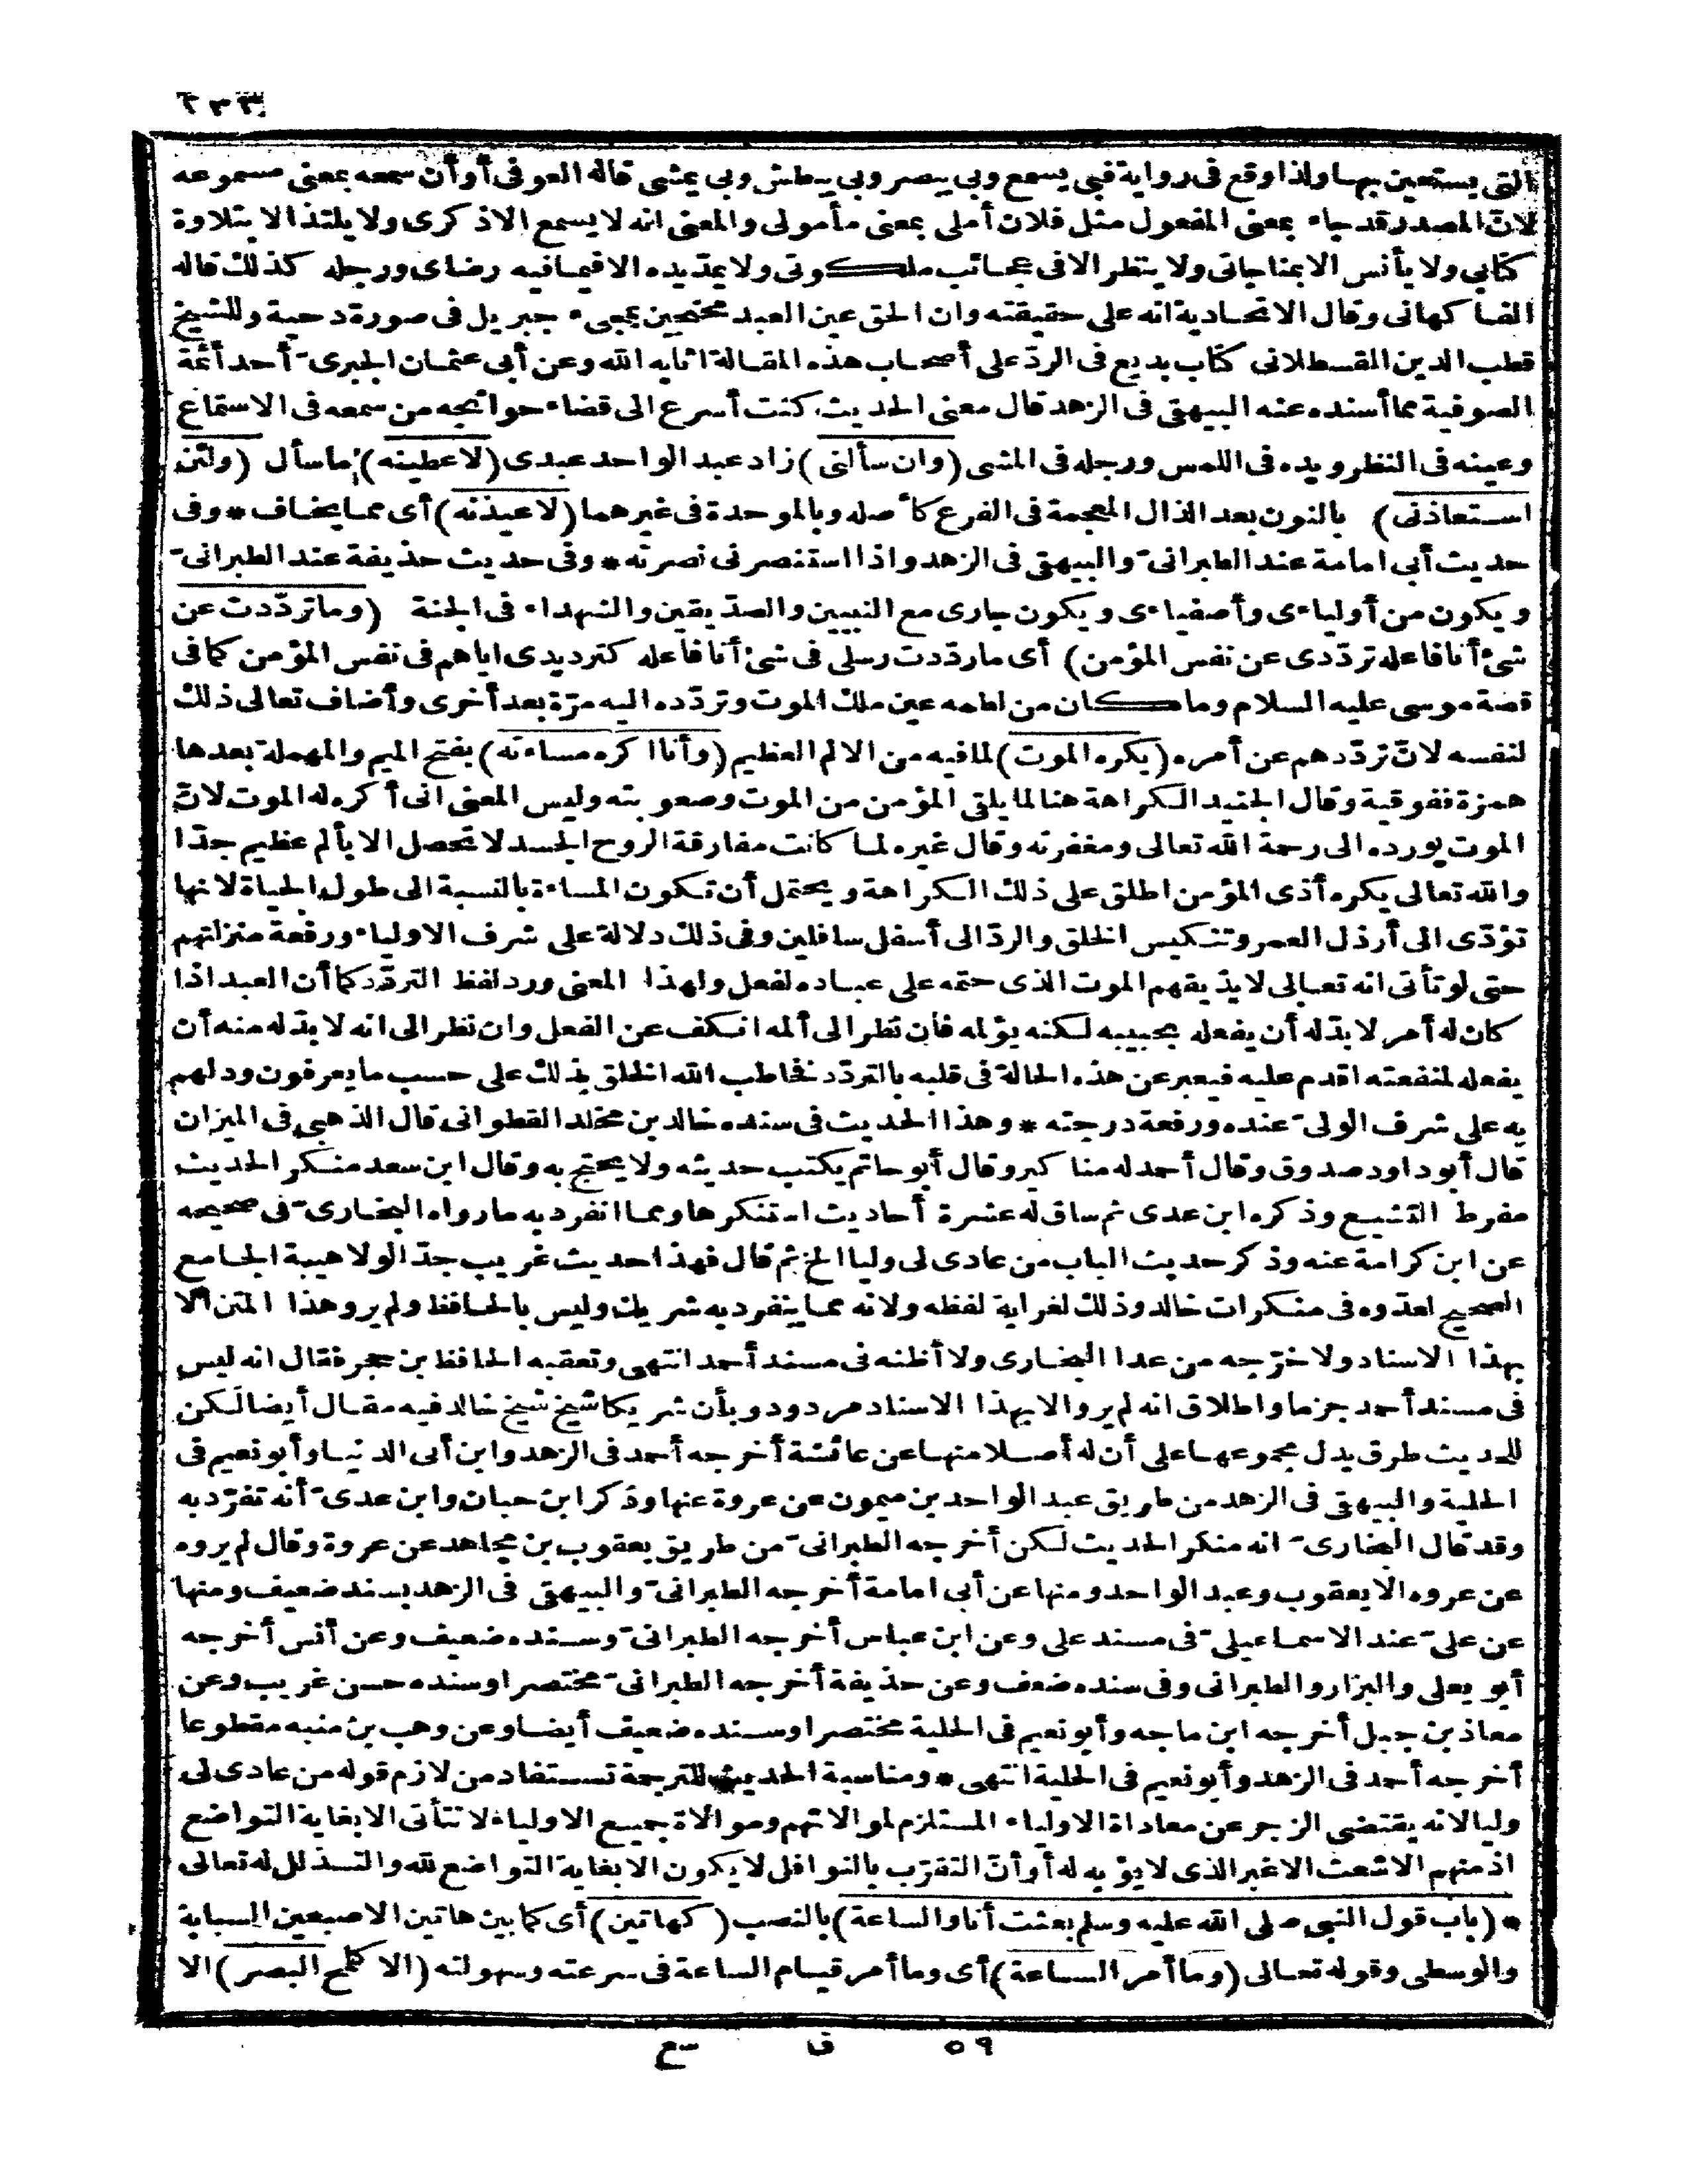 ٢٣٣
التى يستعين بها ولذا وقع فى رواية فبى يسمع وبى يبصر وبى يبطش وبى يمشى قاله العوفى أو أن سمعه بمعنى مسموعه
لانّ المصدر قد جاء بمعنى المفعول مثل فلان أملى بمعنى مأمولى والمعنى انه لا يسمع الا ذكرى ولا يلتذ الا بتلاوة
كتابى ولا يأنس الا بمناجاتى ولا ينظر الا فى عجائب ملكوتى ولا يمدّ يده الا فيما فيه رضاى ورجله كذلك قاله
الفاكهانى وقال الاتحادية انه على حقيقته وان الحق عين العبد محتجين بمجىء جبريل فى صورة دحية وللشيخ
قطب الدين القسطلانى كتاب بديع فى الردّ على أصحاب هذه المقالة اثابه الله وعن أبى عثمان الجيرىّ أحد أئمة
الصوفية مما أسنده عنه البيهقى فى الزهد قال معنى الحديث كنت أسرع الى قضاء حوائجه من سمعه فى الاستماع
وعينه فى النظر ويده فى اللمس ورجله فى المشى (وان سألنى) زاد عبد الواحد عبدى (لاعطينه) ما سأل (ولئن
استعاذنى) بالنون بعد الذال المعجمة فى الفرع كأصله وبالموحدة فى غيرهما (لاعيذنه) أى مما يخاف * وفى
حديث أبى امامة عند الطبرانىّ والبيهقى فى الزهد واذا استنصرنى نصرته * وفى حديث حذيفة عند الطبرانىّ
ويكون من أوليائى وأصفيائى ويكون جارى مع النبيين والصدّيقين والشهداء فى الجنة (وما تردّدت عن
شئ أنا فاعله تردّدى عن نفس المؤمن) أى ما ردّدت رسلى فى شئ أنا فاعله كترديدى اياهم فى نفس المؤمن كما فى
قصة موسى عليه السلام وما كان من لطمه عين ملك الموت وتردّده اليه مرّة بعد أخرى وأضاف تعالى ذلك
لنفسه لانّ تردّدهم عن أمره (يكره الموت) لما فيه من الالم العظيم (وأنا اكره مساءته) بفتح الميم والمهملة بعدها
همزة ففوقية وقال الجنيد الكراهة هنا لما يلقى المؤمن من الموت وصعوبته وليس المعنى انى أكره له الموت لانّ
الموت يورده الى رحمة الله تعالى ومغفرته وقال غيره لما كانت مفارقة الروح الجسد لا تحصل الا بألم عظيم جدّا
والله تعالى يكره أذى المؤمن اطلق على ذلك الكراهة ويحتمل أن تكون المساءة بالنسبة الى طول الحياة لانها
تؤدّى الى أرذل العمر وتنكيس الخلق والردّ الى أسفل سافلين وفى ذلك دلالة على شرف الاولياء ورفعة منزلتهم
حتى لو تأتى انه تعالى لا يذيقهم الموت الذى حتمه على عباده لفعل ولهذا المعنى ورد لفظ التردّد كما أن العبد اذا
كان له أمر لا بدّ له أن يفعله بحبيبه لكنه يؤلمه فان نظر الى ألمه انكف عن الفعل وان نظر الى انه لا بدّ له منه أن
يفعله لمنفعته اقدم عليه فيعبر عن هذه الحالة فى قلبه بالتردّد فخاطب الله الخلق بذلك على حسب ما يعرفون ودلهم
به على شرف الولىّ عنده ورفعة درجته * وهذا الحديث فى سنده خالد بن مخلد القطوانى قال الذهبى فى الميزان
قال أبو داود صدوق وقال أحمد له مناكير وقال أبو حاتم يكتب حديثه ولا يحتج به وقال ابن سعد منكر الحديث
مفرط التشيع وذكره ابن عدى ثم ساق له عشرة أحاديث استنكرها ومما انفرد به ما رواه البخارىّ فى صحيحه
عن ابن كرامة عنه وذكر حديث الباب من عادى لى وليا الخ ثم قال فهذا حديث غريب جدّا لولا هيبة الجامع
الصحيح لعدّوه فى منكرات خالد وذلك لغرابة لفظه ولانه مما ينفرد به شريك وليس بالحافظ ولم يرو هذا المتن الا
بهذا الاسناد ولا خرّجه من عدا البخارى ولا أظنه فى مسند أحمد انتهى وتعقبه الحافظ بن حجر فقال انه ليس
فى مسند أحمد جزما واطلاق انه لم يرو الا بهذا الاسناد مردود وبأن شريكا شيخ شيخ خالد فيه مقال أيضا لكن
للحديث طرق يدل مجموعها على أن له أصلا منها عن عائشة أخرجه أحمد فى الزهد وابن أبى الدنيا وأبو نعيم فى
الحلية والبيهقى فى الزهد من طريق عبد الواحد بن ميمون عن عروة عنها وذكر ابن حبان وابن عدىّ أنه تفرّد به
وقد قال البخارىّ انه منكر الحديث لكن أخرجه الطبرانىّ من طريق يعقوب بن مجاهد عن عروة وقال لم يروه
عن عروه الا يعقوب وعبد الواحد ومنها عن أبى امامة أخرجه الطبرانىّ والبيهقى فى الزهد بسند ضعيف ومنها
عن علىّ عند الاسماعيلىّ فى مسند على وعن ابن عباس أخرجه الطبرانىّ وسنده ضعيف وعن أنس أخرجه
أبو يعلى والبزار والطبرانى وفى سنده ضعف وعن حذيفة أخرجه الطبرانىّ مختصرا وسنده حسن غريب وعن
معاذ بن جبل أخرجه ابن ماجه وأبو نعيم فى الحلية مختصرا وسنده ضعيف أيضا وعن وهب بن منبه مقطوعا
أخرجه أحمد فى الزهد وأبو نعيم فى الحلية انتهى * ومناسبة الحديث للترجمة تستفاد من لازم قوله من عادى لى
وليا لانه يقتضى الزجر عن معاداة الاولياء المستلزم لموالاتهم وموالاة جميع الاولياء لا تتأتى الا بغاية التواضع
اذ منهم الاشعث الاغبر الذى لا يؤبه له أو أنّ التقرّب بالنوافل لا يكون الا بغاية التواضع لله والتذلل له تعالى
* (باب قول النبى صلى الله عليه وسلم بعثت أنا والساعة) بالنصب (كهاتين) أى كما بين هاتين الاصبعين السبابة
والوسطى وقوله تعالى (وما أمر الساعة) أى وما أمر قيام الساعة فى سرعته وسهولته (الا كلمح البصر) الا
٥٩ ق سع